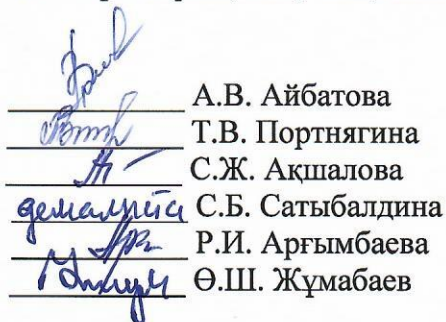 А.В. Айбатова
Т.В. Портнягина
С.Ж. Ақшалова
демалыста С.Б. Сатыбалдина
Р.И. Арғымбаева
Ө.Ш. Жұмабаев